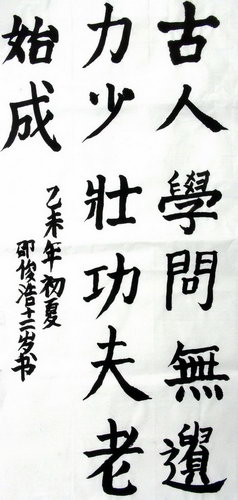 古人學問無遺
力少壯功夫老
始成
乙未年初夏
邵俊浩十二岁书